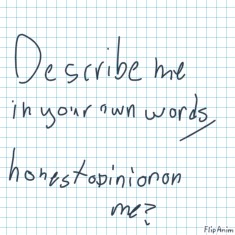 Describe me
in your own words
honest opinion on
me?
FlipAnim